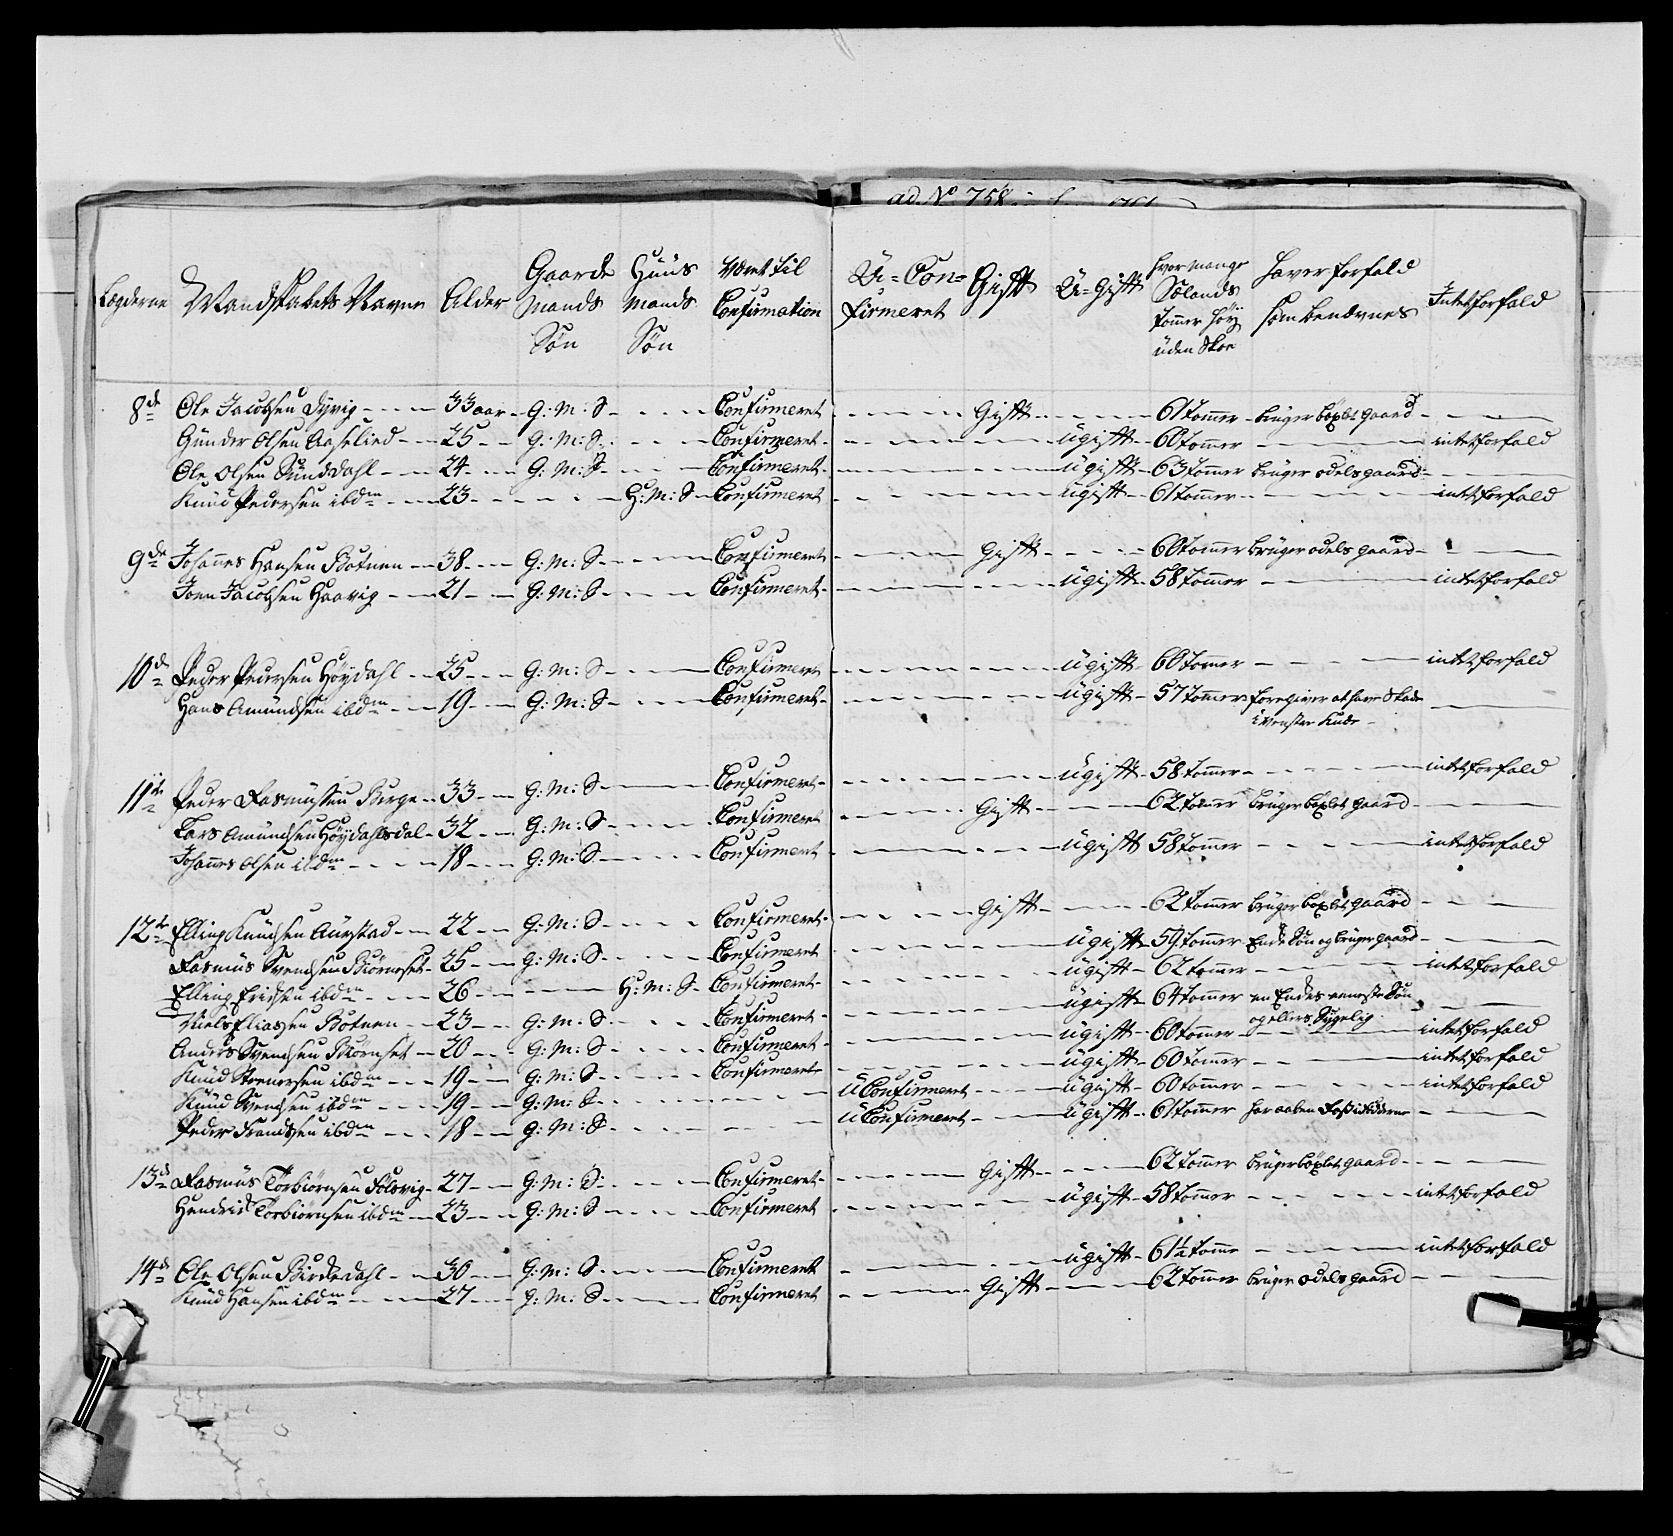 ad. No 758
Lægderne Mandskabets Navne Alder Gaarde Mands Søn Huus Mands Søn Været til Confirmation U=Confirmeret Gift U=Gift hvor mange Sølands tommer høÿ uden Skoe haver forfald som benævnes Intet forfald
8de Ole Jacobsen Dÿvig 33 aar G: M: S Confirmeret Gift 61 tommer bruger böxlet gaard
Gunder Olsen Aaselied 25 G: M: S Confirmeret ugift 60 tommer intet forfald
Ole Olsen Sundsdahl 24 G: M: S Confirmeret ugift 63 tommer bruger odels gaard
Knud Pedersen ibdm 23 H: M: S Confirmeret ugift 61 tommer intet forfald
9de Johannes Hansen Botnen 38 G: M: S Confirmeret Gift 60 tommer bruger odels gaard
Joen Jacobsen Haavig 21 G: M: S Confirmeret ugift 58 tommer intet forfald
10de Peder Pedersen Höÿdahl 25 G: M: S Confirmeret ugift 60 tommer intet forfald
Hans Amundsen ibdm 19 G: M: S Confirmeret ugift 57 tommer foregiver at have Skade
i venstre Knæe
11te Peder Rasmusen Berge 33 G: M: S Confirmeret ugift 58 tommer intet forfald
Lars Amundsen Höÿdahlsdal 32 G: M: S Confirmeret Gift 62 tommer bruger böxlet gaard
Johannes Olsen ibdm 18 G: M: S Confirmeret ugift 58 tommer intet forfald
12te Elling Knudsen Aurstad 22 G: M: S Confirmeret Gift 62 tommer bruger böxlet gaard
Rasmus Svendsen Biörneset 25 G: M: S Confirmeret ugift 59 tommer Enke Søn og bruger gaard
Elling Erichsen ibdm 26 H: M: S Confirmeret ugift 62 tommer intet forfald
Niels Eliassen Botnen 23 G: M: S Confirmeret ugift 64 tommer en Enkes eeneste Søn
og ellers Sÿgelig
Anders Svendsen Biörnset 20 G: M: S Confirmeret ugift 60 tommer intet forfald
Knud Steenersen ibdm 19 G: M: S Confirmeret ugift 60 tommer intet forfald
Knud Svendsen ibdm 19 G: M: S uConfirmeret ugift 60 tommer intet forfald
Peder Frandsen ibdm 18 G: M: S uConfirmeret ugift 61 tommer har aaben
13de Rasmus Torbiörnsen Fölsvig 27 G: M: S Confirmeret Gift 62 tommer bruger böxlet gaard
Hendrich Torbiörnsen ibdm 23 G: M: S Confirmeret ugift 58 tommer intet forfald
14de Ole Olsen Birkedahl 30 G: M: S Confirmeret ugift 61½ tomme intet forfald
Knud Hansen ibdm 27 G: M: S Confirmeret Gift 62 tommer bruger odels gaard